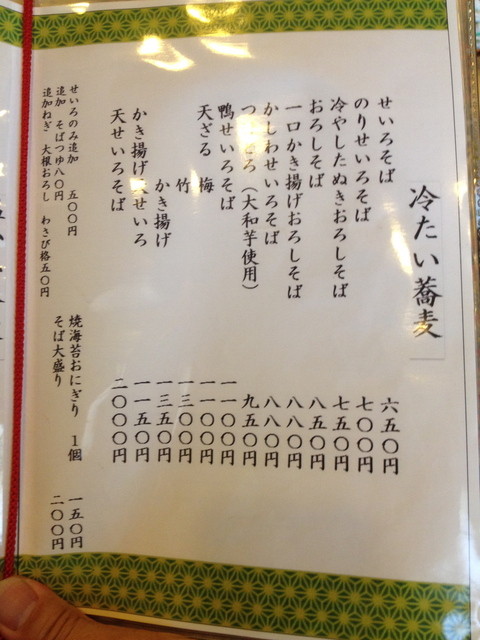 冷たい蕎麦
せいろそば 六五〇円
のりせいろそば 七〇〇円
冷やしたぬきおろしそば 七五〇円
おろしそば 八五〇円
一口かき揚げおろしそば 八八〇円
かしわせいろそば 八八〇円
（大和芋使用） 九五〇円
鴨せいろそば 一一〇〇円
天ざる 梅 一一〇〇円
竹 一三〇〇円
かき揚げ 一三五〇円
かき揚げ天せいろ 一一五〇円
天せいろそば 二〇〇〇円
せいろのみ追加 五〇〇円
追加 そばつゆ八〇円
追加ねぎ 大根おろし わさび格五〇円
焼海苔おにぎり 1個 一五〇円
そば大盛り 二〇〇円